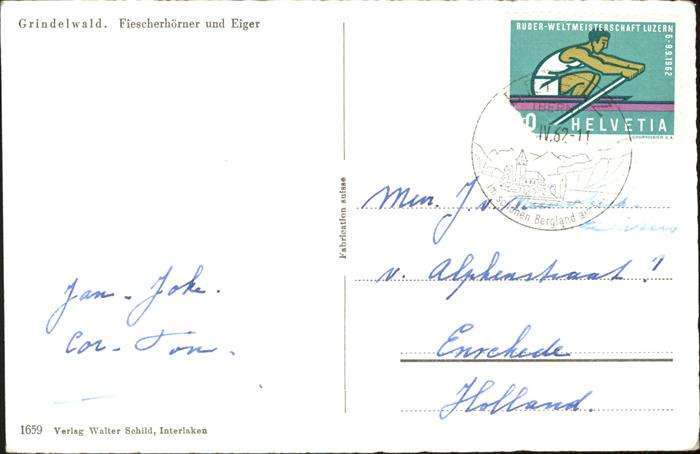 Grindelwald. Fiescherhörner und Eiger
RUDER-WELTMEISTERSCHAFT LUZERN
6.-9.9.1962
0 HELVETIA
COURVOISIER S.A.
IV.62-11
Bergland
Fabrication suisse
Men. J. v.
v. Alphenstraat
Enschede
Holland.
Jan - Joke.
Cor - Ton.
1659 Verlag Walter Schild, Interlaken